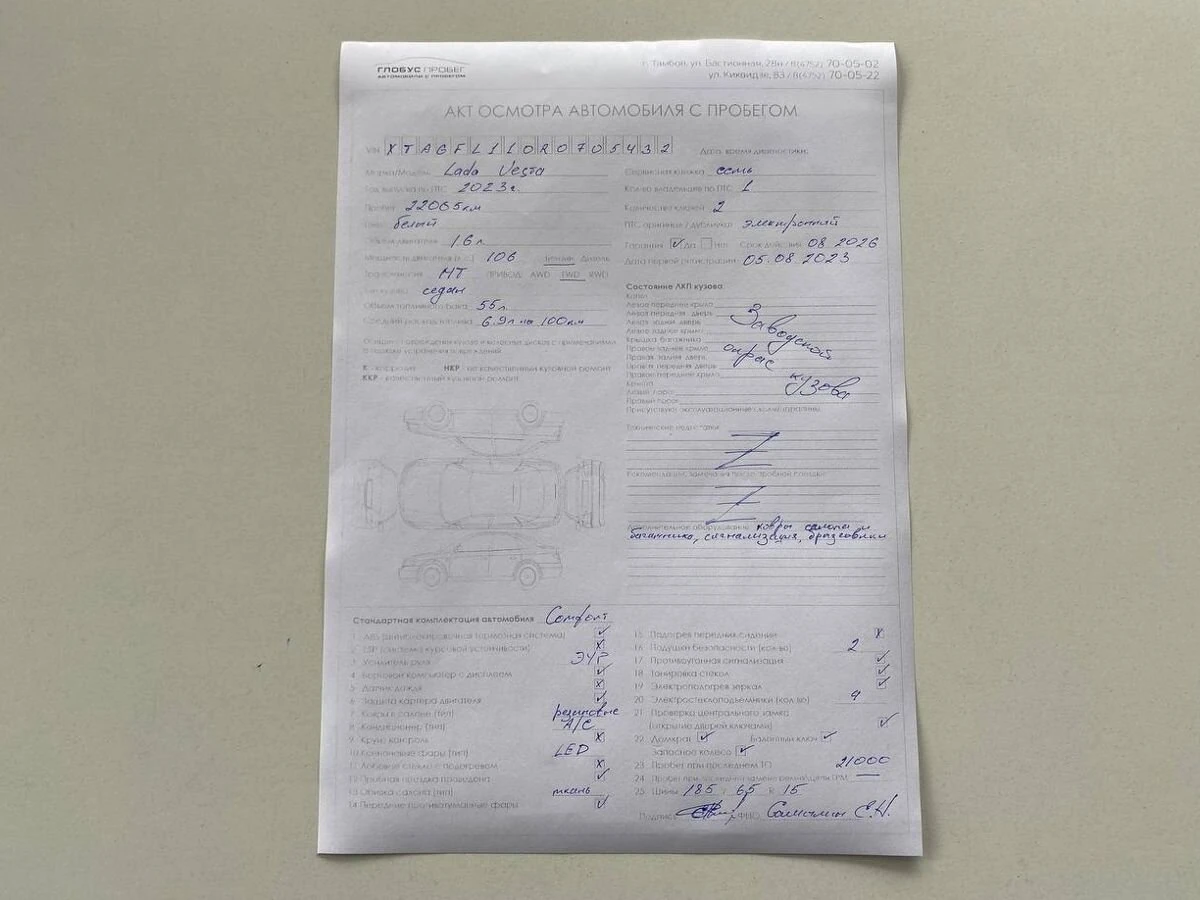 ГЛОБУС ПРОБЕГ
АВТОМОБИЛИ С ПРОБЕГОМ
г. Тамбов, ул. Бастионная, 28и / 8(4752) 70-05-02
ул. Киквидзе, 83 / 8(4752) 70-05-22
АКТ ОСМОТРА АВТОМОБИЛЯ С ПРОБЕГОМ
VIN XTAGFL110R0705432
Дата, время диагностики:
Марка/Модель Lada Vesta
Год выпуска по ПТС 2023г.
Пробег 22065 км
белый
1.6 л
Мощность двигателя (л.с.) 106 Бензин Дизель
МТ ПРИВОД AWD FWD RWD
седан
Объем топливного бака 55 л
Средний расход топлива 6.9 л на 100 км
Сервисная книжка есть
Кол-во владельцев по ПТС 1
Количество ключей 2
ПТС оригинал / дубликат электронный
Гарантия Да Нет Срок действия 08.2026
Дата первой регистрации 05.08.2023
К - коррозия НКР - не качественный кузовной ремонт
ККР - качественный кузовной ремонт
Состояние ЛКП кузова:
Капот
Левое переднее крыло
Левая передняя дверь
Левая задняя дверь
Левое заднее крыло
Крышка багажника
Правое заднее крыло
Правая задняя дверь
Правая передняя дверь
Правое переднее крыло
Заводской
окрас
кузова
Технические недостатки
Z
Z
Дополнительное оборудование ковры салона и
багажника, сигнализация, брызговики
Стандартная комплектация автомобиля Comfort
1 ABS (антиблокировочная тормозная система)
2 ESP (система курсовой устойчивости)
3 Усилитель руля ЭУР
4 Бортовой компьютер с дисплеем
5 Датчик дождя
6 Защита картера двигателя
7 Ковры в салоне (тип) резиновые
8 Кондиционер (тип) A/C
9 Круиз контроль
10 Ксеноновые фары (тип) LED
11 Лобовое стекло с подогревом
12 Пробная поездка проведена
13 Обивка салона (тип) ткань
14 Передние противотуманные фары
15 Подогрев передних сидений
16 Подушки безопасности (кол-во) 2
17 Противоугонная сигнализация
18 Тонировка стекол
19 Электроподогрев зеркал
20 Электростеклоподъемники (кол-во) 4
21 Проверка центрального замка
(открытие дверей ключами)
22 Домкрат Балонный ключ
Запасное колесо
23 Пробег при последнем ТО 21000
24 Пробег при последней замене ремня/цепи ГРМ —
25 Шины 185 / 65 R 15
Подпись ФИО